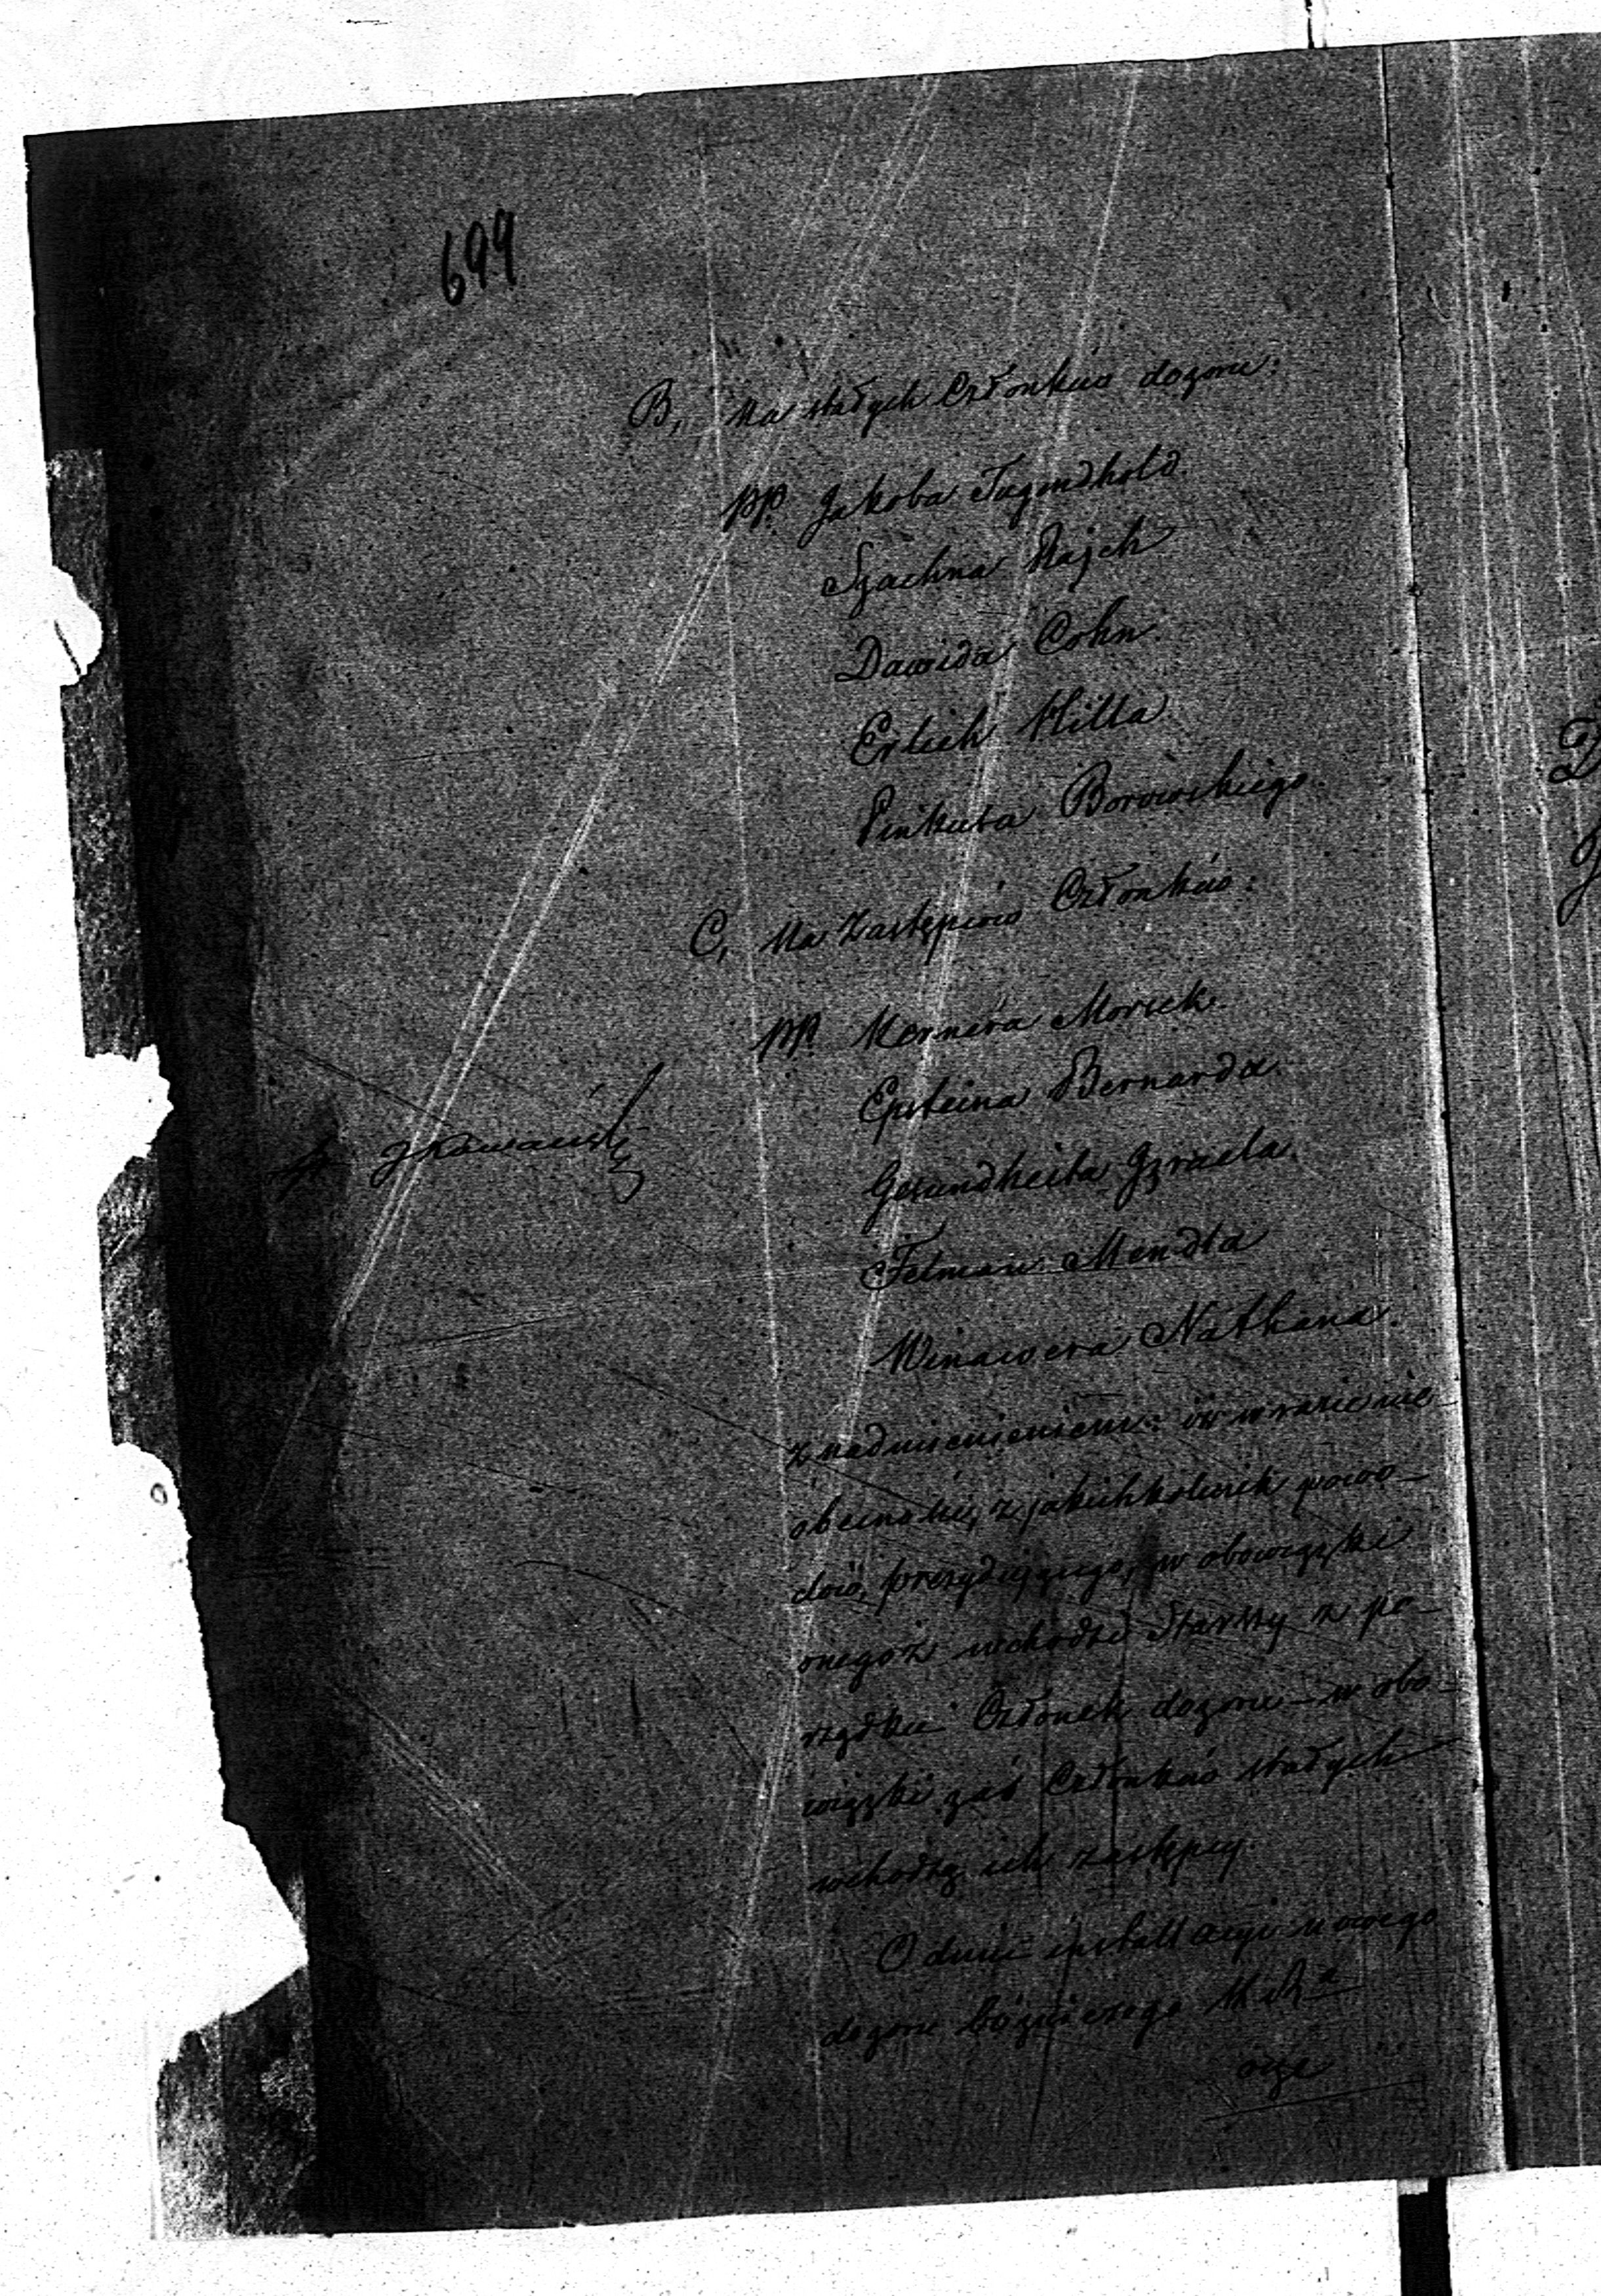 699
B, Na stałych Członków dozoru:
PP. Jakoba Tugendhold.
Szachna Rajch
Dawida Cohn.
Erlich Hilla
Pinkusa Borowskiego.
C, Na Zastępców Członków:
PP. Kernera Moriek.
Epsteina Bernarda.
Gesundheita Izraela.
Felman Mendla
Winawera Nathana.
z nadmienieniem: iż w razie nie
obecności, z jakichkolwiek powo-
dów, prezydującego, w obowiązki
onegoż wchodzi Starszy z po-
rządku Członek dozoru – w obo-
wiązki zaś Członków stałych
wchodzą ich zastępcy.
O dniu installacyi nowego
dozoru bóżniczego